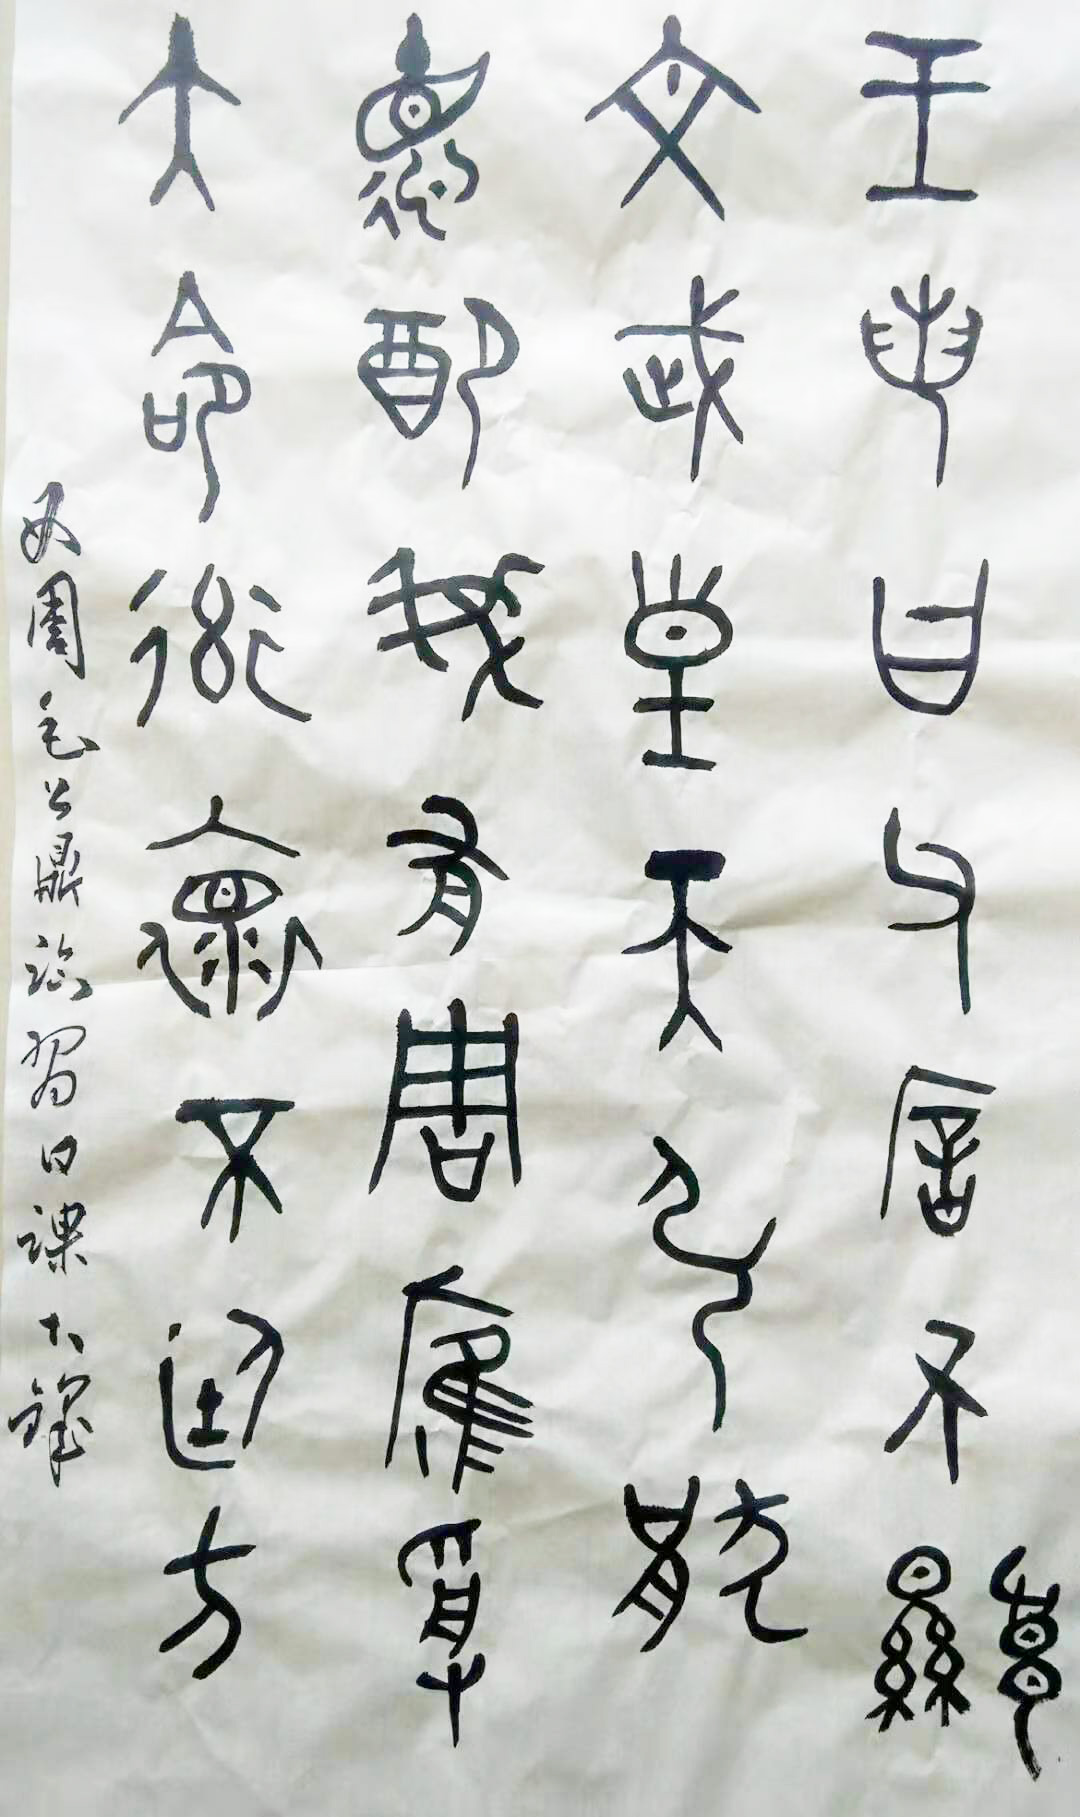 王若曰父厝不顯
文武皇天引猒
德配我有周雁受
大命衒褱不廷方
周毛公鼎临習日課